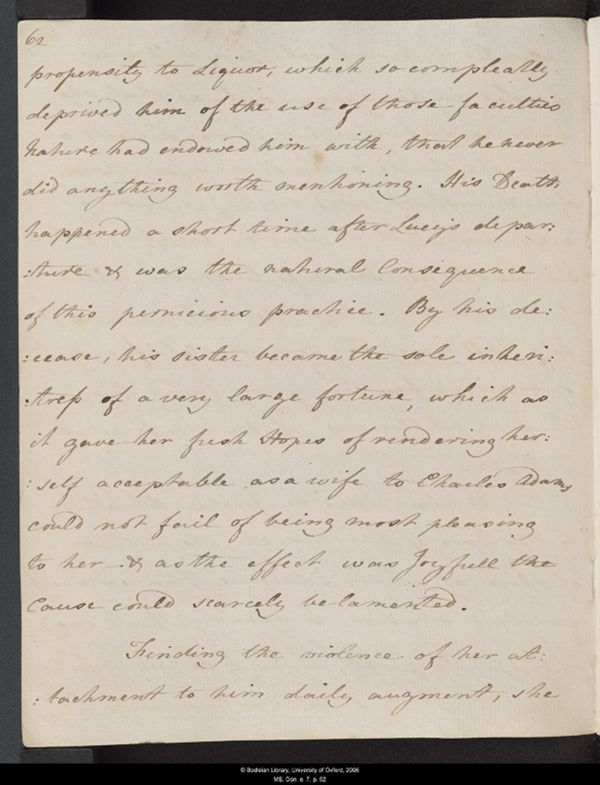 62
propensity to Liquor, which so compleatly
deprived him of the use of those faculties
Nature had endowed him with, that he never
did anything worth mentioning. His Death
happened a short time after Lucy's depar:
:ture & was the natural Consequence
of this pernicious practice. By his de:
:cease, his sister became the sole inheri:
:tress of a very large fortune, which as
it gave her fresh Hopes of rendering her:
:self acceptable as a wife to Charles Adams
could not fail of being most pleasing
to her & as the effect was Joyfull the
Cause could scarcely be lamented.
Finding the violence of her at:
:tachment to him daily augment, she
© Bodleian Library, University of Oxford, 2006
MS. Don. e. 7, p. 62